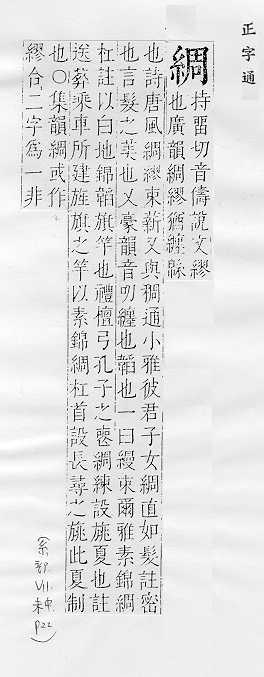 正字通
綢
持畱切音儔說文繆
也廣韻綢繆猶纏緜
也詩唐風綢繆束薪又與稠通小雅彼君子女綢直如髮註密
也言髮之美也又豪韻音叨纏也韜也一曰縵束爾雅素錦綢
杠註以白地錦韜旗竿也禮檀弓孔子之喪綢練設旐夏也註
送葬乘車所建旌旗之竿以素錦綢杠首設長尋之旐此夏制
也○集韻綢或作
繆合二字爲一非
(糸部
VII
未中
P22)